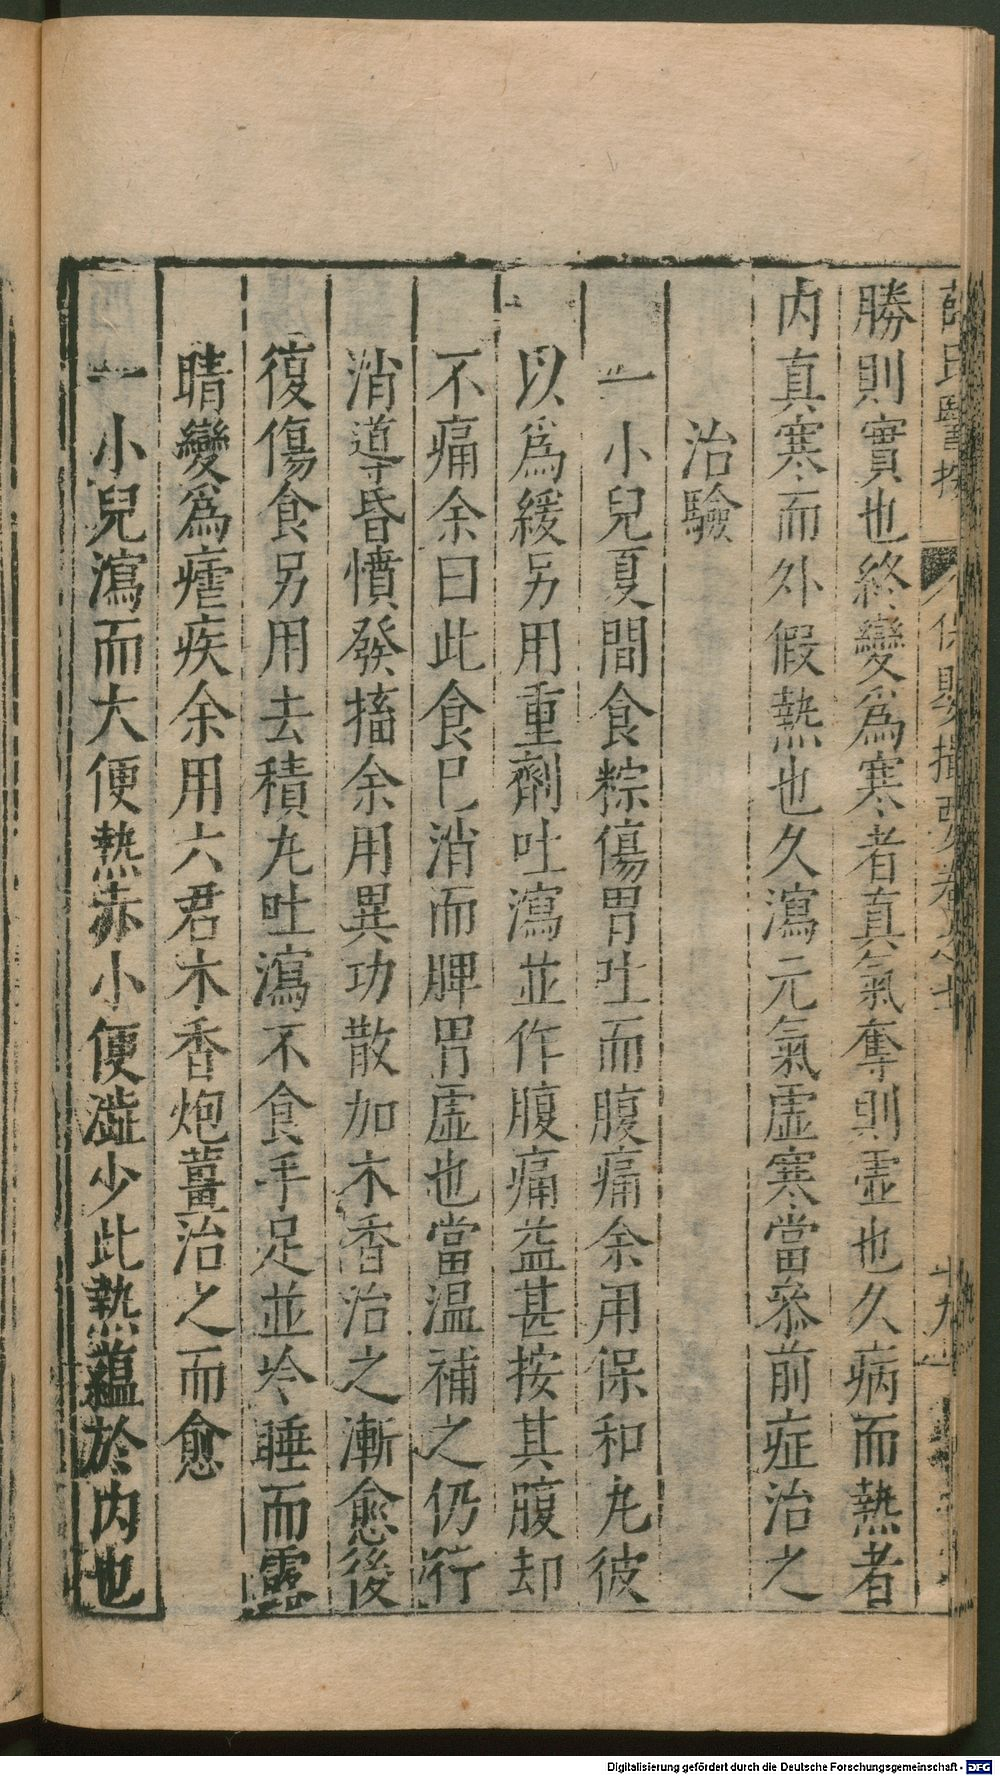 薛氏醫按 保嬰撮要卷之七 十九
勝則實也終變爲寒者真氣奪則虛也久病而熱者
内真寒而外假熱也久瀉元氣虛寒當叅前症治之
治驗
一小兒夏間食粽傷胃吐而腹痛余用保和丸彼
以爲緩另用重劑吐瀉並作腹痛益甚按其腹却
不痛余曰此食已消而脾胃虛也當温補之仍行
消導昏憒發搐余用異功散加木香治之漸愈後
復傷食另用去積丸吐瀉不食手足並冷睡而露
睛變爲瘧疾余用六君木香炮薑治之而愈
一小兒瀉而大便熱赤小便澁少此熱蘊於内也
Digitalisierung gefördert durch die Deutsche Forschungsgemeinschaft - DFG